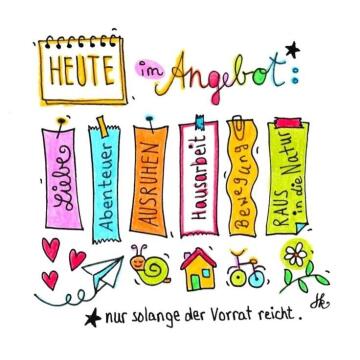 HEUTE im Angebot:*
Liebe
Abenteuer
AUSRUHEN
Hausarbeit
Bewegung
RAUS
in die Natur
*nur solange der Vorrat reicht.